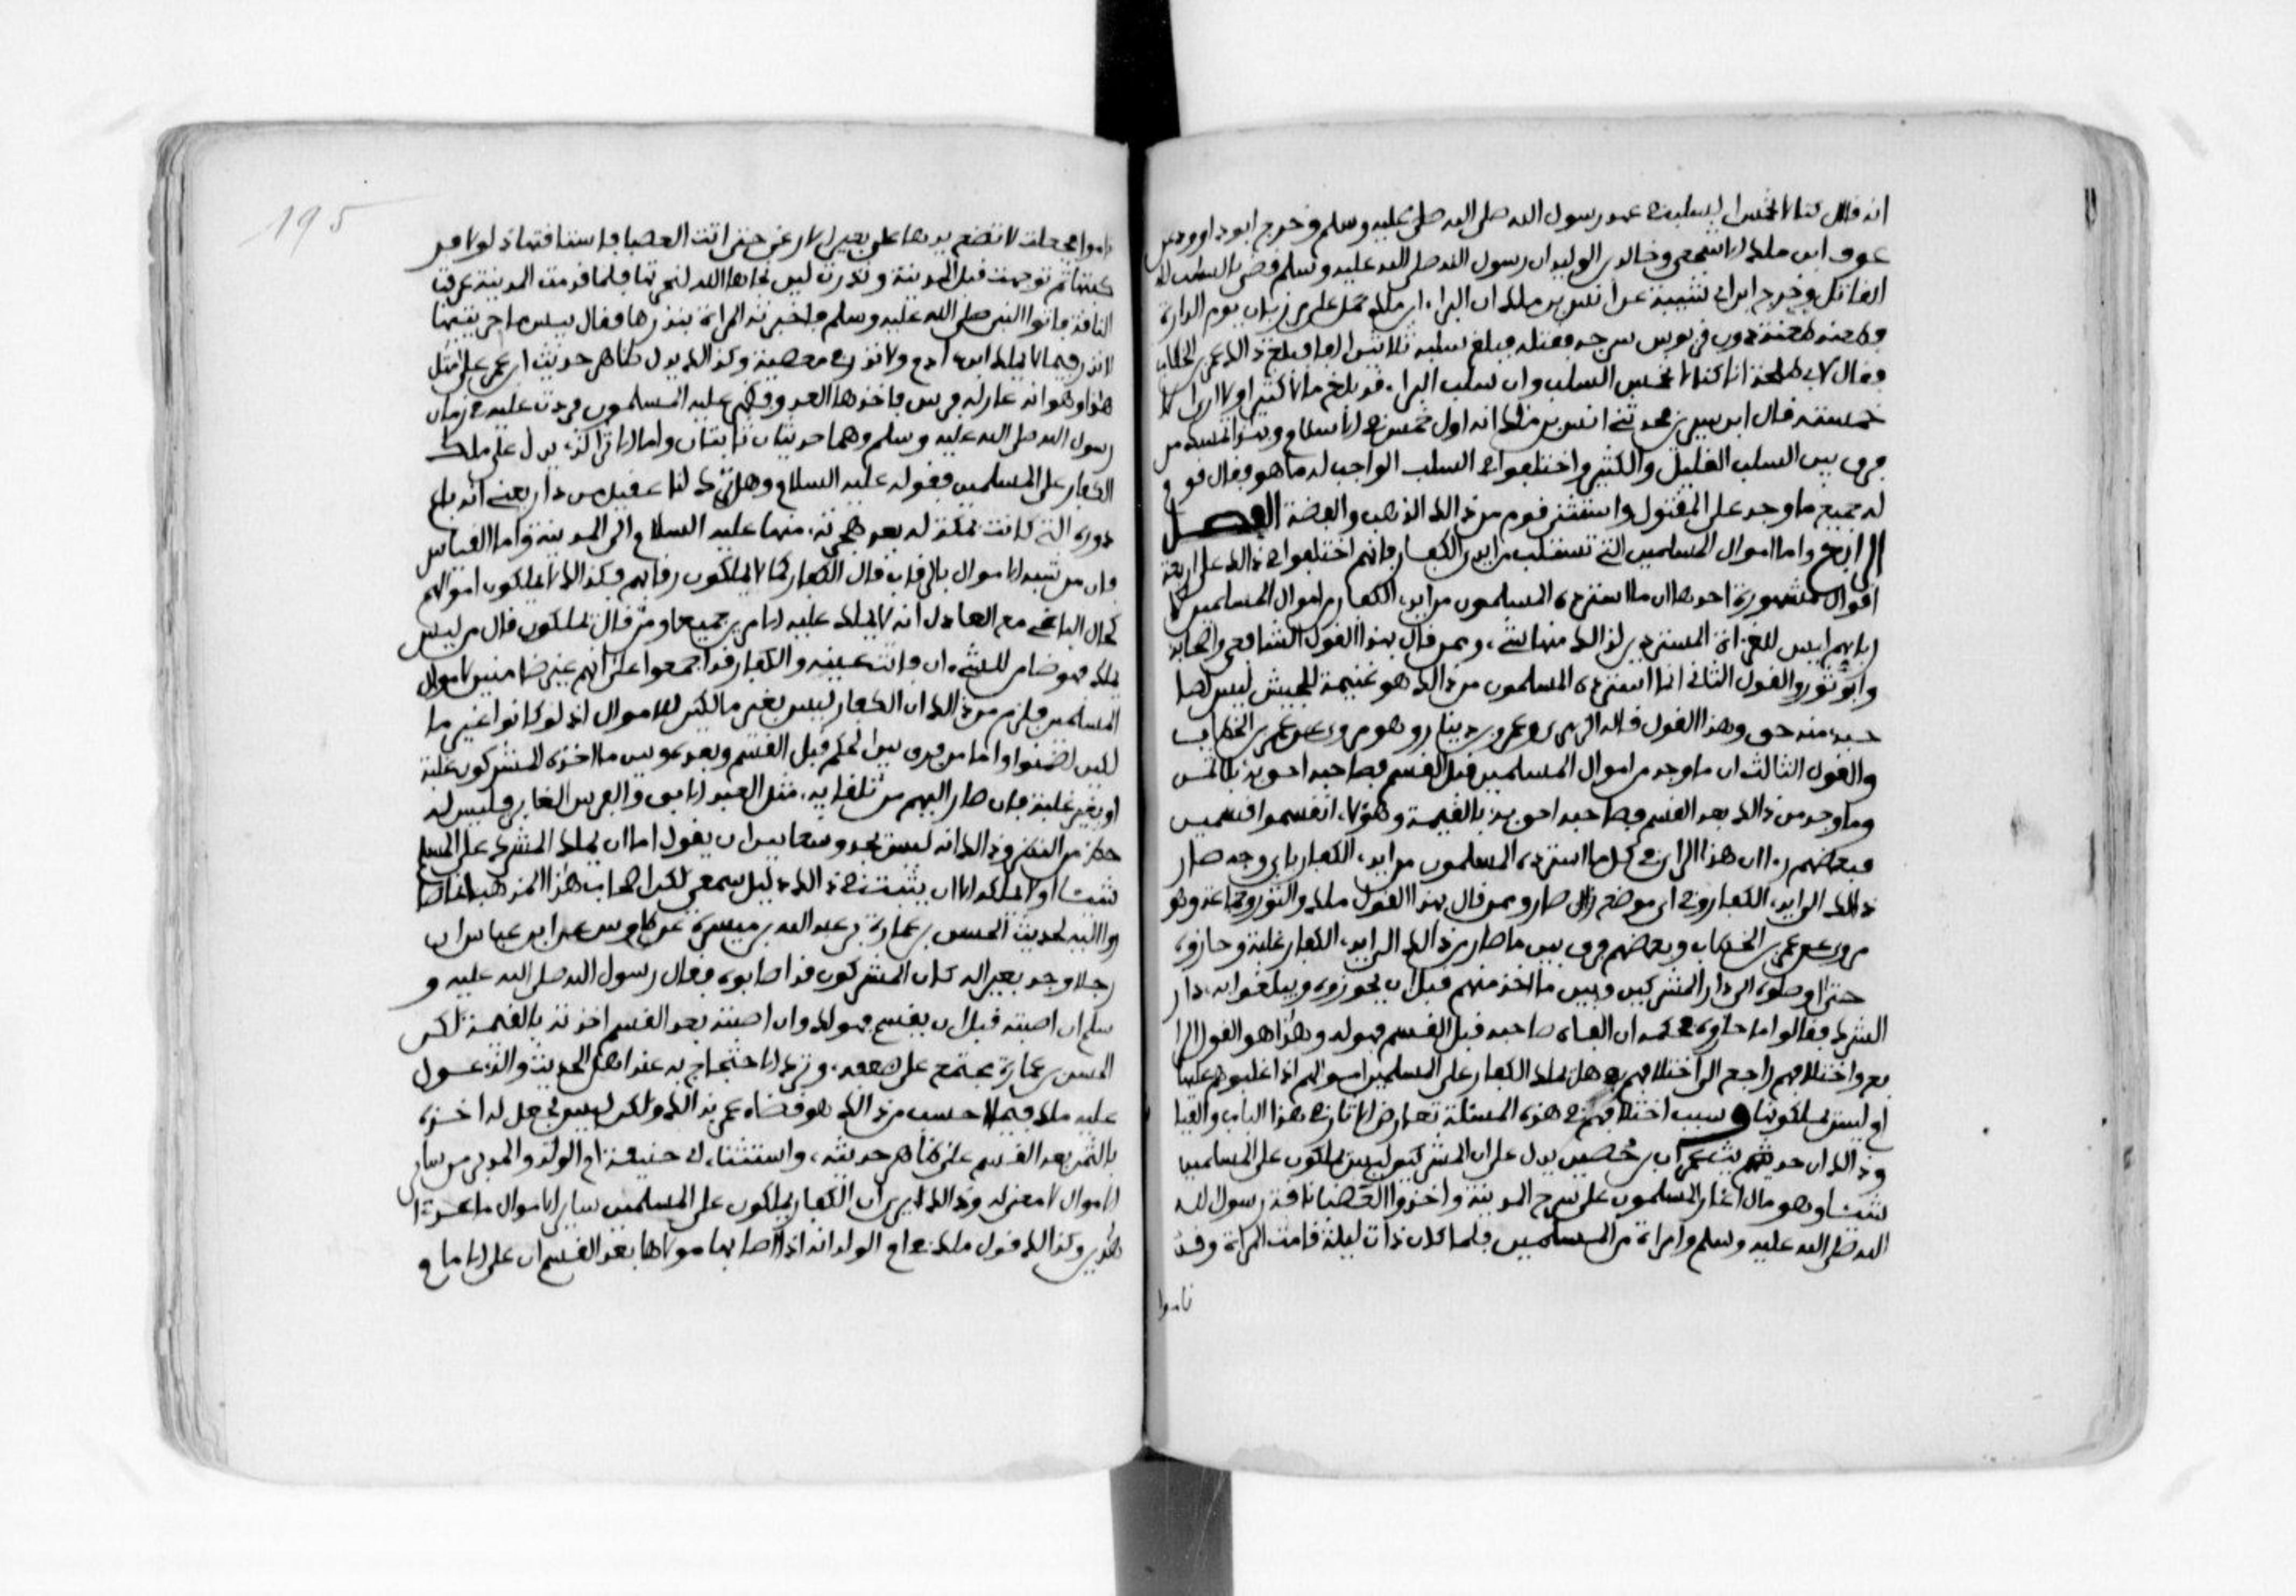 انه قال كنا لا نخمس السلب في عهد رسول الله صلى الله صلى عليه وسلم وخرج ابو داوود عن
عوف ابن ملك الاشجعي وخالد بن الوليد ان رسول الله صلى الله عليه وسلم قضى بالسلب للا
القاتل وخرج ابن ابي شيبة عن انس بن ملك ان البراء ابن ملك حمل على مرزبان يوم الدارة
وطعنه طعنة دون قربوس سرجه فقتله فبلغ سلبه ثلاثين الفا فبلغ ذالك عمر بن الخطاب
وقال لابي طلحة انا كنا لا نخمس السلب وان سلب البراء قد بلغ مالا كثيرا ولا اراني الا
خمسته قال ابن سيرين فحدثني انس بن ملك انه اول خمس في الاسلام وبهذا تمسك من
فرق بين السلب القليل والكثير واختلفوا في السلب الواجب له ما هو فقال قوم
له جميع ما وجد على المقتول واستثنى قوم من ذالك الذهب والفضة الفصل
الرابع واما اموال المسلمين التي تستلب من ايدي الكفار فانهم اختلفوا في ذالك على اربعة
اقوال مشهورة احدها ان ما استرده المسلمون من ايدي الكفار من اموال المسلمين لا
ربابها ليس للغزاة المستردين لذالك منها شيء وممن قال بهذا القول الشافعي واصحابه
وابو ثور والقول الثاني ان ما استرده المسلمون من ذالك هو غنيمة للجيش ليس لصا
حبه منه حق وهذا القول قاله الزهري وعمرو بن دينار وهو مروي عن عمر بن الخطاب
والقول الثالث ان ما وجد من اموال المسلمين قبل القسم فصاحبه احق به بلا ثمن
وما وجد من ذالك بعد القسم فصاحبه احق به بالقيمة وهؤلاء انقسموا قسمين
فبعضهم رءا ان هذا الراي في كل ما استرده المسلمون من ايدي الكفار باي وجه صار
ذالك الى ايدي الكفار وفي اي موضع صار وممن قال بهذا القول ملك والثوري وجماعة وهو
مروي عن عمر بن الخطاب وبعضهم فرق بين ما صار من ذالك الى ايدي الكفار غلبة وحازوه
حتى اوصلوه الى دار المشركين وبين ما اخذ منهم قبل ان يحوزوه ويبلغوا به دار
الشرك فقالوا ما حازوه فحكمه ان الفاه صاحبه قبل القسم فهو له وهذا هو القول الرا
بع واختلافهم راجع الى اختلافهم في هل يملك الكفار على المسلمين اموالهم اذا غلبوهم عليها
او ليس يملكونها وسبب اختلافهم في هذه المسئلة تعارض الاثار في هذا الباب والقيا
وذالك ان حديث عمران بن حصين يدل على ان المشركين ليس يملكون على المسلمين
شيئا وهو قال اغار المسلمون على سرح المدينة واخذوا العضباء ناقة رسول الله
الله صلى الله عليه وسلم وامراة من المسلمين فلما كان ذات ليلة قامت المراة وقد
ناموا
195
ناموا فجعلت لا تضع يدها على بعير الا رغى حتى اتت العضبا فاستنا فتها ذلولا فر
كبتها ثم توجهت قبل المدينة ونذرت ليس نجاها الله لتنحرنها فلما قدمت المدينة عرفت
الناقة فاتوا النبي صلى الله عليه وسلم فاخبرته المراة بنذرها فقال بيس ما جزيتيها
لا نذر فيما لا يملك ابن ءادم ولا نذر في معصية وكذالك يدل ظاهر حديث ابن عمر على مثل
هذا وهو انه غار له فرس فاخذها العدو فظهر عليه المسلمون فردت عليه في زمان
رسول الله صلى الله عليه وسلم وهما حديثان ثابتان واما الاثر الذي يدل على ملك
الكفار على المسلمين فقوله عليه السلام وهل ترك لنا عقيل من دار يعني انه باع
دوره التي كانت بمكة له بعد هجرته منها عليه السلام الى المدينة واما القياس
فان من شبه الاموال بالرقاب قال الكفار كما لا يملكون رقابهم فكذالك لا يملكون اموالهم
كحال الباغي مع العادل انه لا يملك عليه الامرين جميعا ومن قال يملكون قال من ليس
يملك فهو ضامن للشيء ان فاتت عينه والكفار قد اجمعوا على انهم غير ضامنين لاموال
المسلمين فلزم من ذالك ان الكفار ليس بغير مالكين للاموال اذ لو كانوا غير ما
لكين لضمنوا واما من فرق بين الحكم قبل القسم وبعده وبين ما اخذه المشركون غلبة
او بغير غلبة بان صار اليهم من تلقائه مثل العبد الابق والفرس الغاير فليس له
حظ من النظر وذالك انه ليس يجد وسطا بين ان يقول اما ان يملك المشرك على المسلم
شيئا او لا يملكه الا ان يثبت في ذالك دليل سمعي لكن اصحاب هذا المذهب انما صا
روا اليه لحديث الحسن بن عمارة عن عبد الله بن ميسرة عن طاوس عن ابن عباس ان
رجلا وجد بعيرا له كان المشركون قد اصابوه فقال رسول الله صلى الله عليه و
سلم ان اصبته قبل ان يقسم فهو لك وان اصبته بعد القسم اخذته بالقيمة لكن
الحسن بن عمارة مجتمع على ضعفه وترك الاحتجاج به عند اهل الحديث والذي عول
عليه ملك فيما احسب من ذالك هو قضاء عمر بذالك ولكن ليس يجعل له اخذه
بالثمن بعد القسم على ظاهر حديثه واستثناء ابي حنيفة ام الولد والمدبر من سائر
الاموال لا معنى له وذالك انه يرى ان الكفار يملكون على المسلمين ساير الاموال ما عدا
هذين وكذالك قول ملك في ام الولد انه اذا اصابها مولاها بعد القسم ان على الامام